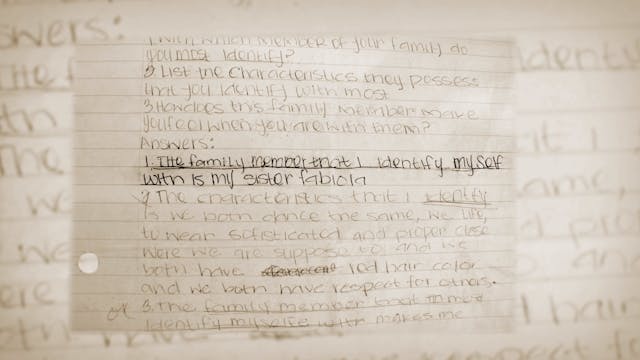 1. With which member of your family do
you most identify?
2 List the characteristics they possess
that you identify with most
3. How does this family member make
you feel when you are with them?
Answers:
1. The family member that I identify myself
with is my sister fabiola
2 The characteristics that I identify
is we both dance the same, we like,
to wear sofisticated and proper close
were we are suppose to, and we
both have red hair color
and we both have respect for others.
3. The family member
Identify myselfe with makes me